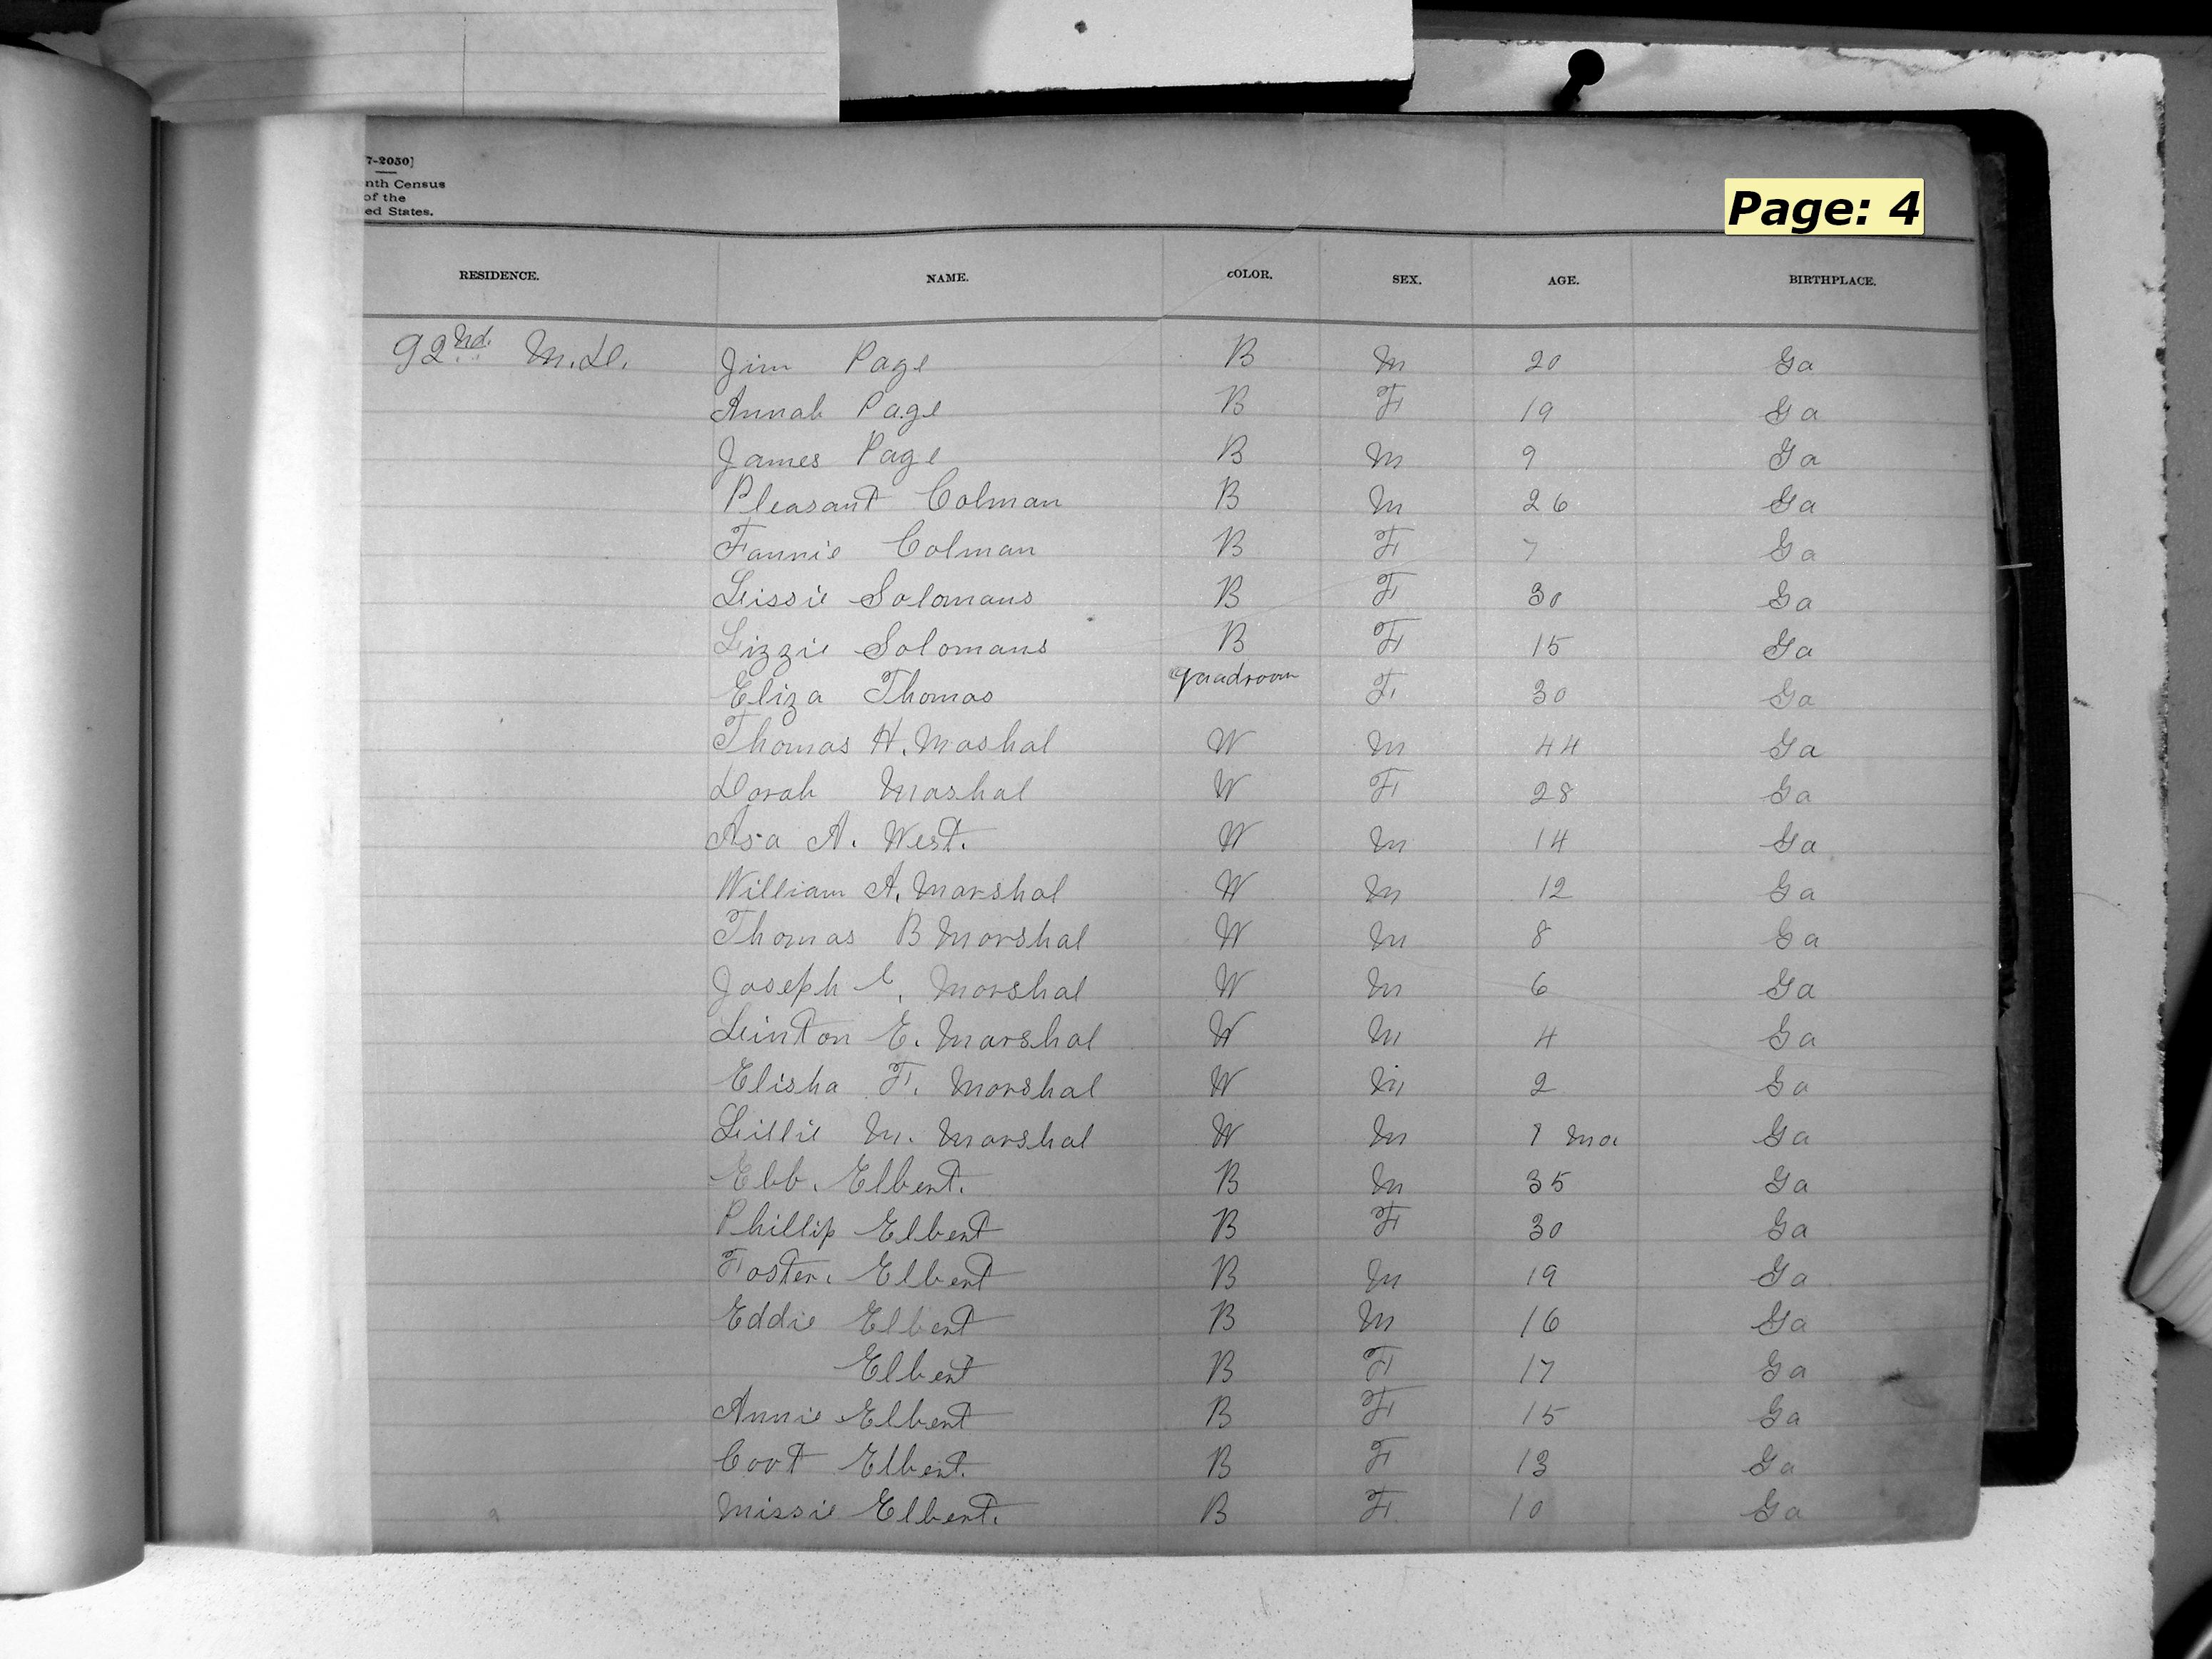 7-2050]
nth Census
of the
ed States.
Page: 4
RESIDENCE. NAME. COLOR. SEX. AGE. BIRTHPLACE.
92nd. M.D. Jim Page B M 20 Ga
Annah Page B F 19 Ga
James Page B M 9 Ga
Pleasant Colman B M 26 Ga
Fannie Colman B F 7 Ga
Lissie Solomans B F 30 Ga
Lizzie Solomans B F 15 Ga
Eliza Thomas quadroon F 30 Ga
Thomas H. Mashal W M 44 Ga
Dorah Mashal W F 28 Ga
Asa A. West. W M 14 Ga
William A. Marshal W M 12 Ga
Thomas B Marshal W M 8 Ga
Joseph Marshal W M 6 Ga
Linton E. Marshal W M 4 Ga
Elisha F. Marshal W M 2 Ga
Lillie M. Marshal W M mo. Ga
Ebb. Elbert. B M 35 Ga
Phillip Elbert B F 30 Ga
Foster. Elbert B M 19 Ga
Eddie Elbert B M 16 Ga
Elbert B F 17 Ga
Annie Elbert B F 15 Ga
Coot Elbert. B F 13 Ga
Missie Elbert. B F 10 Ga